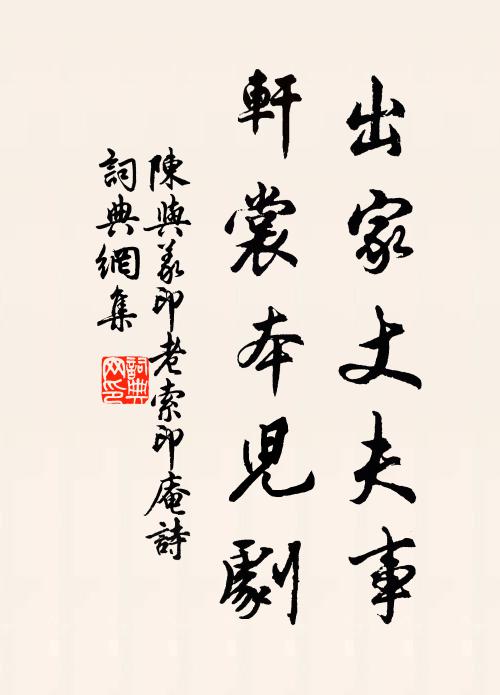 出家丈夫事
軒裳本兒劇
陳與義印老索印庵詩
詞典網集
詞典网印